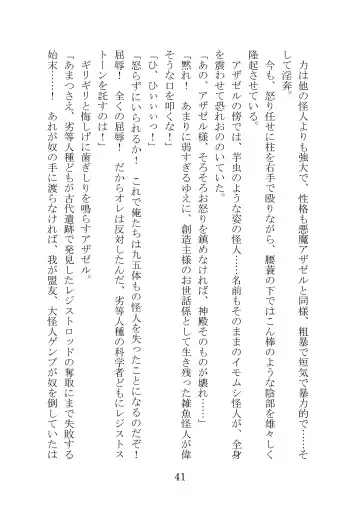 力は他の怪人よりも強大で、性格も悪魔アザゼルと同様、粗暴で短気で暴力的で……そ
して淫奔。
今も、怒り任せに柱を右手で殴りながら、腰蓑の下ではこん棒のような陰部を雄々しく
隆起させている。
アザゼルの傍では、芋虫のような姿の怪人……名前もそのままのイモムシ怪人が、全身
を震わせて恐れおののいていた。
「あの、アザゼル様、そろそろお怒りを鎮めなければ、神殿そのものが壊れ……」
「黙れ！　あまりに弱すぎるゆえに、創造主様のお世話係として生き残った雑魚怪人が偉
そうな口を叩くな！」
「ひ、ひぃぃぃっ！」
「怒らずにいられるか！　これで俺たちは九五体もの怪人を失ったことになるのだぞ！
屈辱！　全くの屈辱！　だからオレは反対したんだ、劣等人種の科学者どもにレジストス
トーンを託すのは！」
ギリギリと悔しげに歯ぎしりを鳴らすアザゼル。
「あまつさえ、劣等人種どもが古代遺跡で発見したレジストロッドの奪取にまで失敗する
始末……！　あれが奴の手に渡らなければ、我が盟友、大怪人ゲンブが奴を倒していたは
41